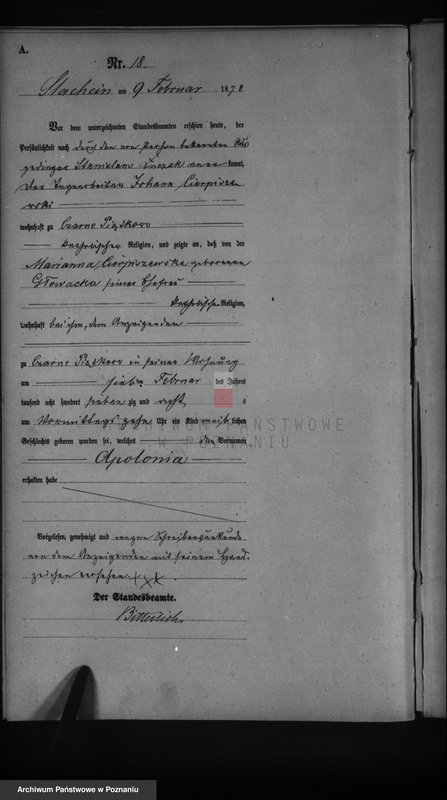 A.
Nr. 18.
Stachein am 9 Februar 1878
Vor dem unterzeichneten Standesbeamten erschien heute, der
Persönlichkeit nach durch den von Person bekannten
Stanislaus kannt,
der Tagearbeiter Johann Cierpiszew
ski
wohnhaft zu Czarne Piątkowo
katholischer Religion, und zeigte an, daß von der
Marianna Cierpiszewska geborenen
Głowacka seiner Ehefrau
katholischer Religion,
wohnhaft bei ihm, dem Anzeigenden
zu Czarne Piątkowo in seiner Wohnung
am sieben Februar des Jahres
tausend acht hundert sieben zig und acht
um Vormittags zehn Uhr ein Kind weib lichen
Geschlechts geboren worden sei, welches den Vornamen
Apolonia
erhalten habe
Vorgelesen, genehmigt und wegen Schreibensunkunde
von dem Anzeigenden mit seinem Hand-
zeichen versehen. xxx.
Der Standesbeamte.
Bitterlich
ARCHIWUM PAŃSTWOWE
W POZNANIU
Archiwum Państwowe w Poznaniu